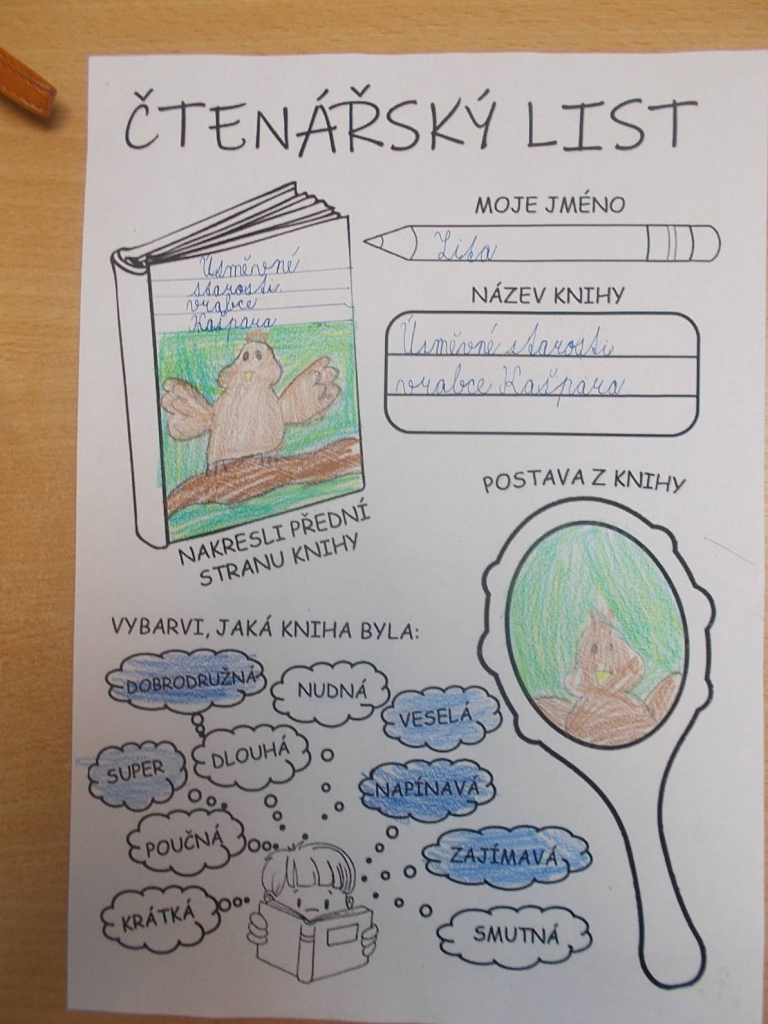 ČTENÁŘSKÝ LIST
MOJE JMÉNO
Lisa
NÁZEV KNIHY
Úsměvné starosti
vrabce Kašpara
Úsměvné
starosti
vrabce
Kašpara
NAKRESLI PŘEDNÍ
STRANU KNIHY
POSTAVA Z KNIHY
VYBARVI, JAKÁ KNIHA BYLA:
DOBRODRUŽNÁ
NUDNÁ
VESELÁ
SUPER
DLOUHÁ
NAPÍNAVÁ
POUČNÁ
ZAJÍMAVÁ
KRÁTKÁ
SMUTNÁ